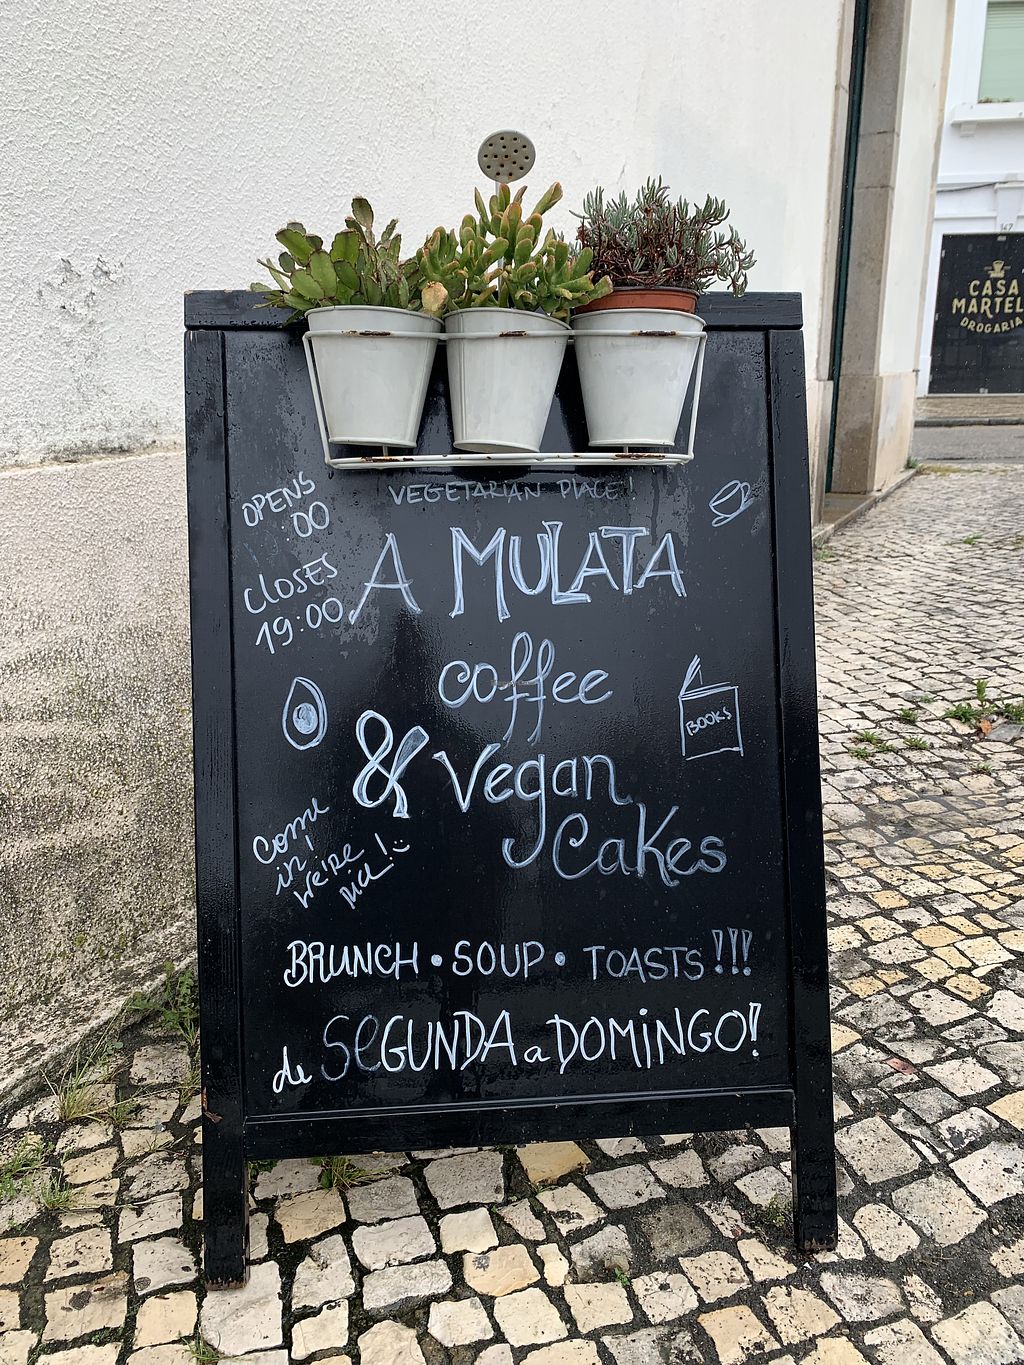 VEGETARIAN PLACE!
OPENS
:00
CLOSES
19:00
A MULATA
coffee
& Vegan
Cakes
BOOKS
Come
in,
we're
nice!
BRUNCH • SOUP • TOASTS!!!
de SEGUNDA a DOMiNGO!
147
CASA
MARTEL
DROGARIA